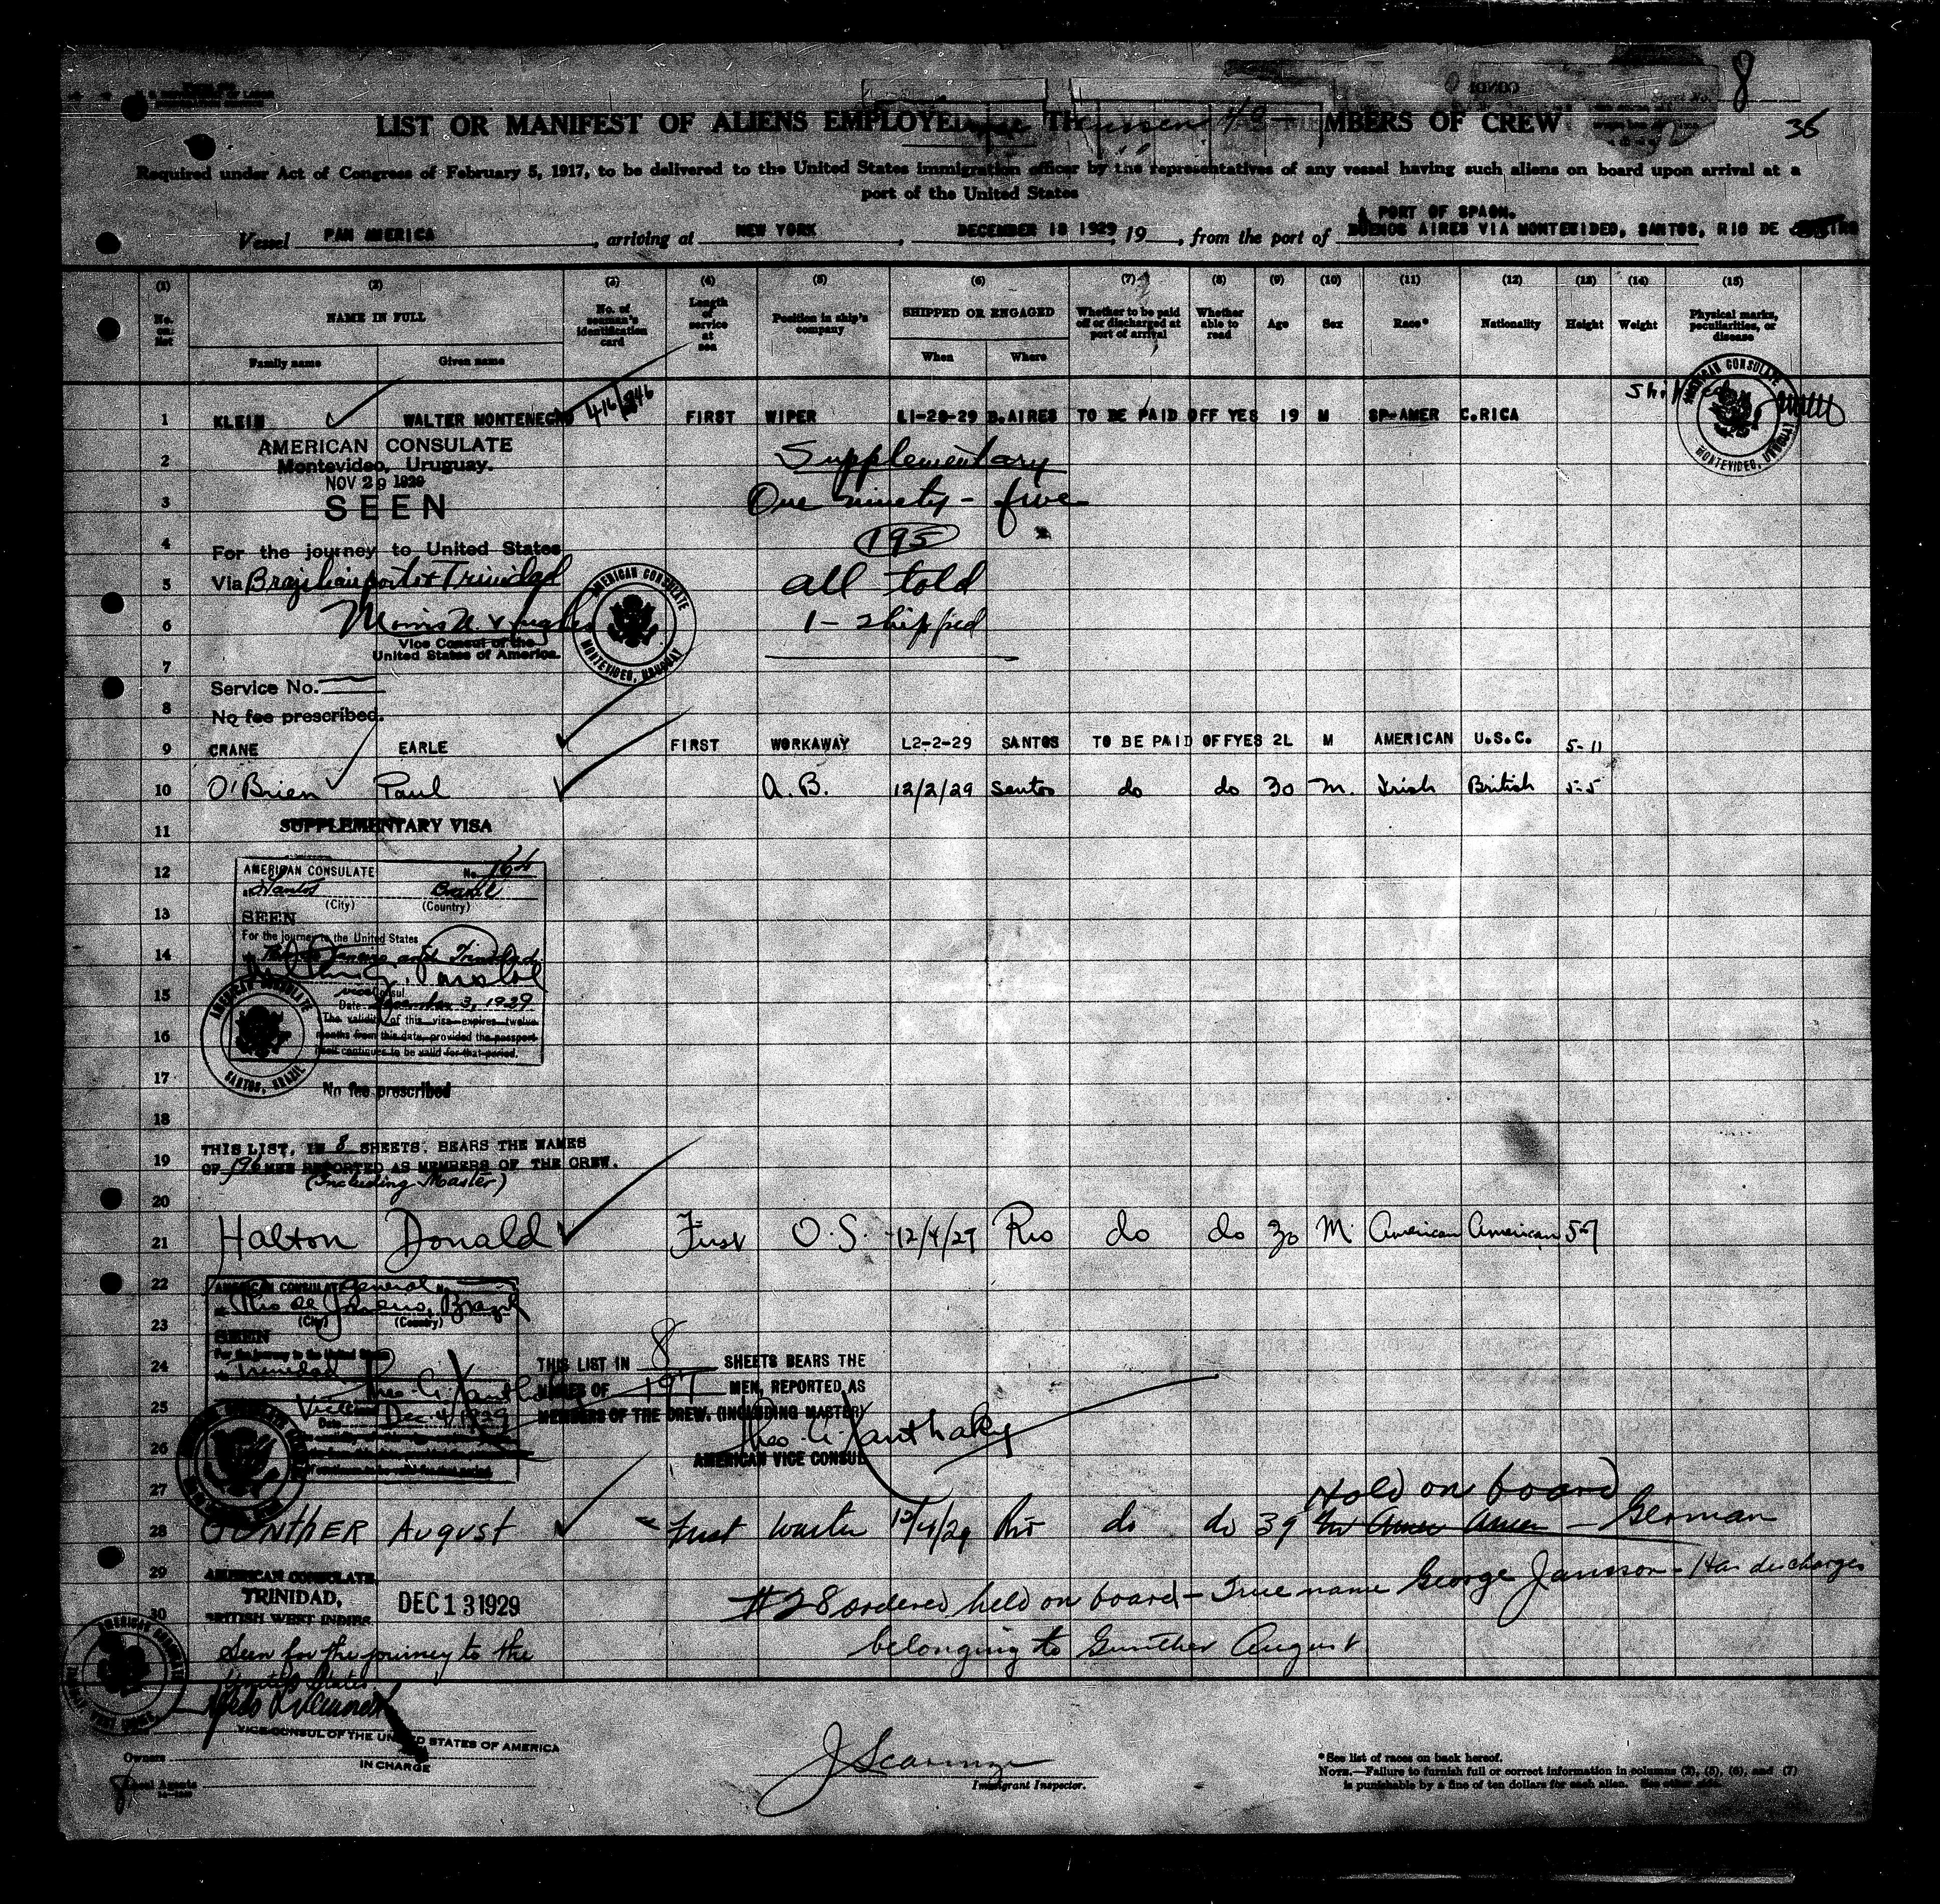 8
36
LIST OR MANIFEST OF ALIENS EMPLOYED MEMBERS OF CREW
Required under Act of Congress of February 5, 1917, to be delivered to the United States immigration officer by the representatives of any vessel having such aliens on board upon arrival at a
port of the United States
PORT OF SPAON.
Vessel PAN AMERICA, arriving at NEW YORK, DECEMBER 18 1929, 19, from the port of BUENOS AIRES VIA MONTEVIDEO, SANTOS, RIO DE
(1) (2) (3) (4) (5) (6) (7) (8) (9) (10) (11) (12) (13) (14) (15)
No. on list NAME IN FULL No. of seaman's identification card Length of service at sea Position in ship's company SHIPPED OR ENGAGED Whether to be paid off or discharged at port of arrival Whether able to read Age Sex Race* Nationality Height Weight Physical marks, peculiarities, or disease
Family name Given name When Where
1 KLEIN WALTER MONTENEGRO 416/846 FIRST WIPER L1-28-29 B.AIRES TO BE PAID OFF YES 19 M SP-AMER C.RICA
AMERICAN CONSULATE MONTEVIDEO, URUGUAY
2 AMERICAN CONSULATE Supplementary
Montevideo, Uruguay.
NOV 29 1929
3 SEEN One ninety-five
4 For the journey to United States 195
5 Via Brazilian ports & Trinidad all told
6 1- shipped
Vice Consul of the
United States of America.
AMERICAN CONSULATE MONTEVIDEO, URUGUAY
7
Service No.
8 No fee prescribed.
9 CRANE EARLE FIRST WORKAWAY L2-2-29 SANTOS TO BE PAID OFFYES 2L M AMERICAN U.S.C. 5-11
10 O'Brien Paul A.B. 12/2/29 Santos do do 30 M. Irish British 5-5
11 SUPPLEMENTARY VISA
12 AMERICAN CONSULATE No. 164
Santos Brazil
(City) (Country)
13 SEEN
For the journey to the United States
14 and Trinidad
15 Vice Consul
Date December 3, 1929
The validity of this visa expires twelve
16 months from this date, provided the passport
continues to be valid for that period.
AMERICAN CONSULATE SANTOS, BRAZIL
17 No fee prescribed
18
THIS LIST, IN 8 SHEETS, BEARS THE NAMES
19 OF 196 MEN REPORTED AS MEMBERS OF THE CREW.
(Including Master)
20
21 Halton Donald First O.S. 12/4/29 Rio do do 30 M. American American 5-7
22 AMERICAN CONSULATE General No.
Rio de Janeiro, Brazil
23 (City) (Country)
SEEN
For the journey to the United States
24 Trinidad THIS LIST IN 8 SHEETS BEARS THE
Theo. A. Xanthaky NAMES OF 197 MEN, REPORTED AS
25 Vice
Date Dec. 4, 1929 MEMBERS OF THE CREW. (INCLUDING MASTER)
Theo. A. Xanthaky
26 AMERICAN VICE CONSUL
27 Hold on board
28 GUNTHER AUGUST First Waiter 12/4/29 Rio do do 39 M Amer Amer - German
29 AMERICAN CONSULATE #28 ordered held on board - True name George Janson - Has discharges
30 TRINIDAD, DEC 13 1929
BRITISH WEST INDIES
belonging to Gunther August
Seen for the journey to the
United States
VICE CONSUL OF THE UNITED STATES OF AMERICA
IN CHARGE
Owners
Local Agents
Immigrant Inspector.
*See list of races on back hereof.
NOTE.—Failure to furnish full or correct information in columns (2), (5), (6), and (7)
is punishable by a fine of ten dollars for each alien. See other side.